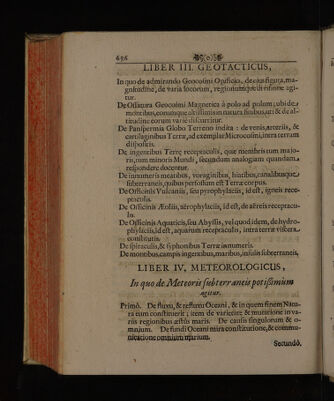 696
LIBER III. GEOTACTICUS,
In quo de admirando Geocosmi Opificio, de eius figura, ma-
gnitudine, de varia locorum, regionumque situ fusissime agi-
tur.
De Ossatura Geocosmi Magnetica à polo ad polum; ubi de
montibus, eorumque altissimis in natura finibus, art: & de al-
titudine eorum varie disseritur.
De Panspermia Globo Terreno indita: de venis, arteriis, &
cartilaginibus Terræ, ad exemplar Microcosmi, intra terram
dispositis.
De ingentibus Terræ receptaculis, quæ membris tum majo-
ris, tum minoris Mundi, secundum analogiam quandam
respondere docentur.
De innumeris meatibus, voraginibus, hiatibus, canalibusque
subterraneis, quibus perfossum est Terræ corpus.
De Officinis Vulcaniis, seu pyrophylaciis, id est, igneis rece-
ptaculis.
De Officinis Æoliis, aërophylaciis, id est, de aëreis receptacu-
lis.
De Officinis Aquaticis, seu Abyssis, vel quod idem, de hydro-
phylaciis, id est, aquarum receptaculis, intra terræ viscera
constitutis.
De spiraculis, & syphonibus Terræ innumeris.
De montibus, campis ingentibus, maribus, insulis subterraneis.
LIBER IV. METEOROLOGICUS,
In quo de Meteoris subterraneis potißimùm
agitur.
Primò. De fluxu, & refluxu Oceani, & in quem finem Natu-
ra eum constituerit; item de varietate & mutatione in va-
riis regionibus æstûs maris. De causis singulorum & o-
mnium. De fundi Oceani mira constitutione, & commu-
nicatione omnium marium.
Secundò.